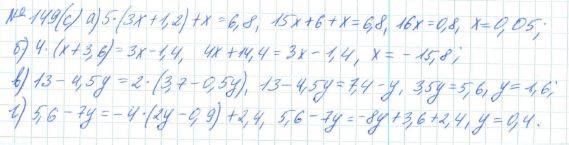 № 149(с) а) 5·(3x+1,2)+x=6,8, 15x+6+x=6,8, 16x=0,8, x=0,05;
б) 4·(x+3,6)=3x-1,4, 4x+14,4=3x-1,4, x=-15,8;
в) 13-4,5y=2·(3,7-0,5y), 13-4,5y=7,4-y, 3,5y=5,6, y=1,6;
г) 5,6-7y=-4·(2y-0,9)+2,4, 5,6-7y=-8y+3,6+2,4, y=0,4.